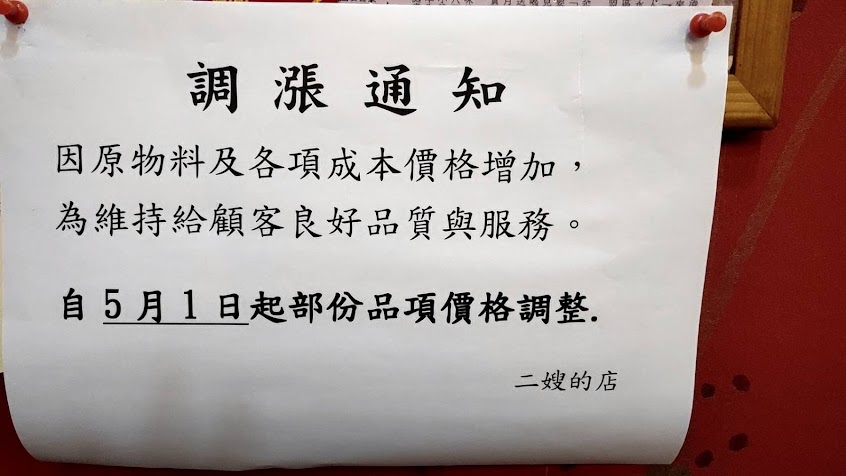 調漲通知
因原物料及各項成本價格增加，
為維持給顧客良好品質與服務。
自 5月1日起部份品項價格調整.
二嫂的店